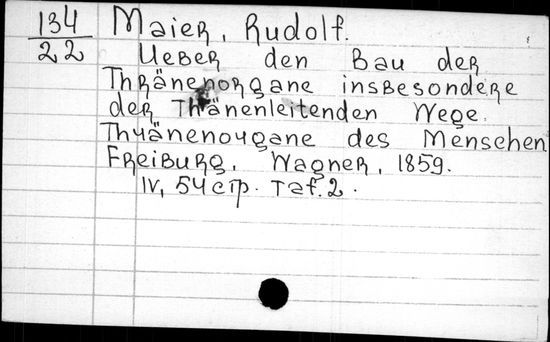 134 Maier, Rudolf.
22 Ueber den Bau der
Thränenorgane insbesondere
der Thänenleitenden Wege.
Thuänenougane des Menschen
Freiburg, Wagner, 1859.
IV, 54 стр. Taf. 2.